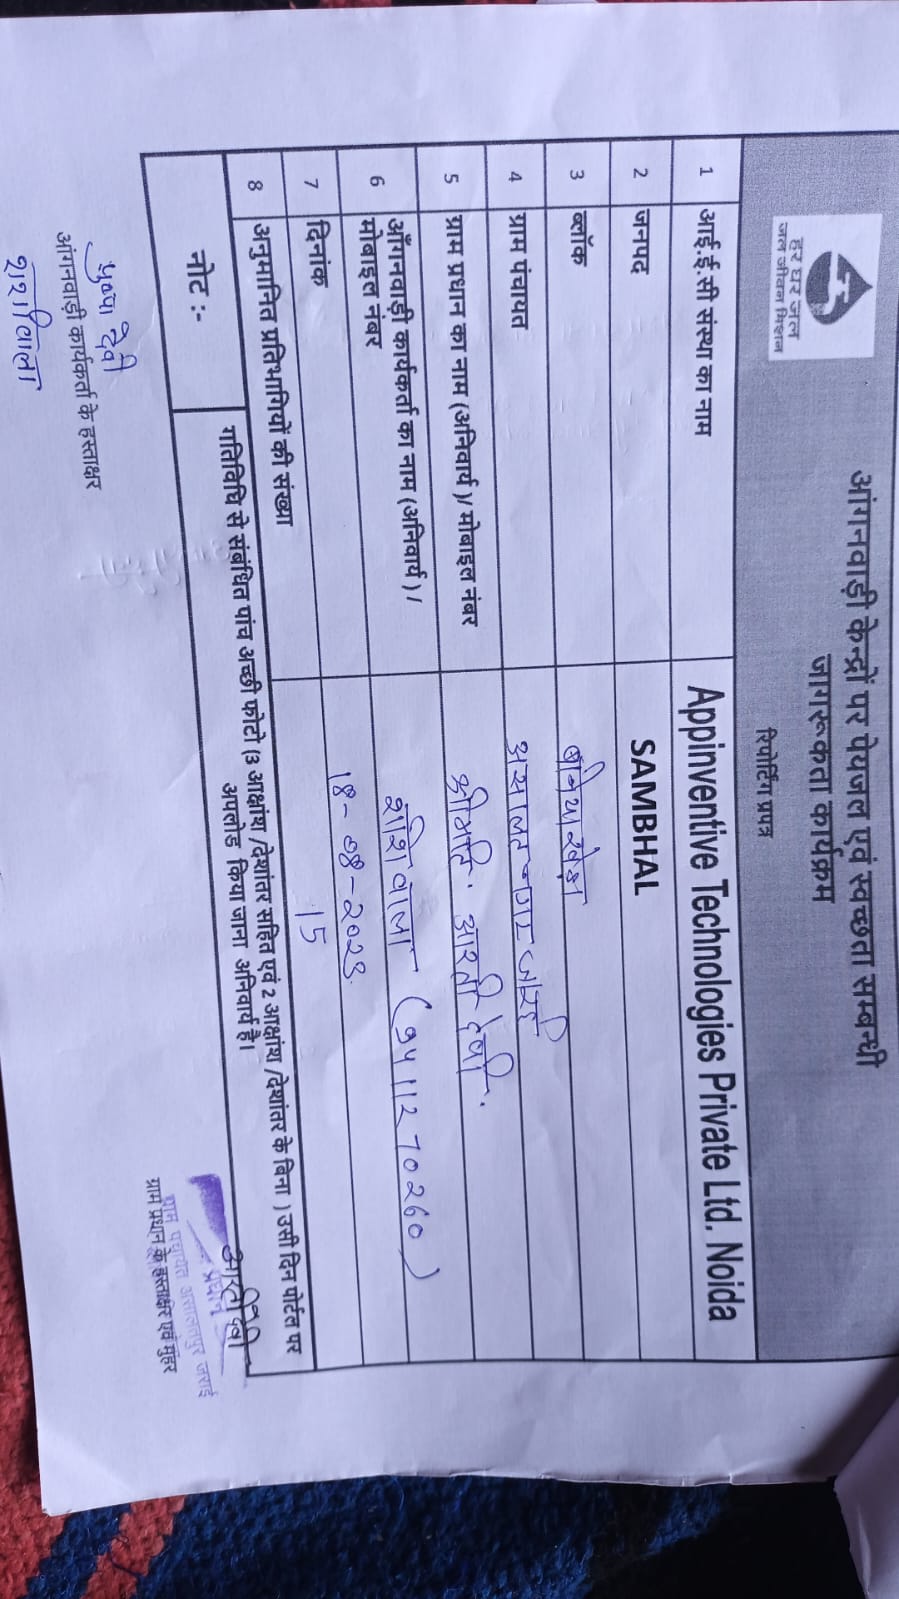 हर घर जल
जल जीवन मिशन
आंगनवाड़ी केन्द्रों पर पेयजल एवं स्वच्छता सम्बन्धी
जागरूकता कार्यक्रम
रिपोर्टिंग प्रपत्र
1 आई.ई.सी संस्था का नाम Appinventive Technologies Private Ltd. Noida
2 जनपद SAMBHAL
3 ब्लॉक बनियाखेड़ा
4 ग्राम पंचायत जरई
5 ग्राम प्रधान का नाम (अनिवार्य )/ मोबाइल नंबर श्रीमति. आरती देवी.
6 आँगनवाड़ी कार्यकर्ता का नाम (अनिवार्य ) / शशिवाला (9411270260)
मोबाइल नंबर
7 दिनांक
8 अनुमानित प्रतिभागियों की संख्या 15
नोट :- गतिविधि से संबंधित पांच अच्छी फोटो (3 आक्षांश /देशांतर सहित एवं 2 आक्षांश /देशांतर के बिना ) उसी दिन पोर्टल पर
अपलोड किया जाना अनिवार्य है।
पुष्पा देवी
आंगनवाड़ी कार्यकर्ता के हस्ताक्षर
शशिवाला
आरती देवी
प्रधान
ग्राम पंचायत असालतपुर जराई
ग्राम प्रधान के हस्ताक्षर एवं मुहर